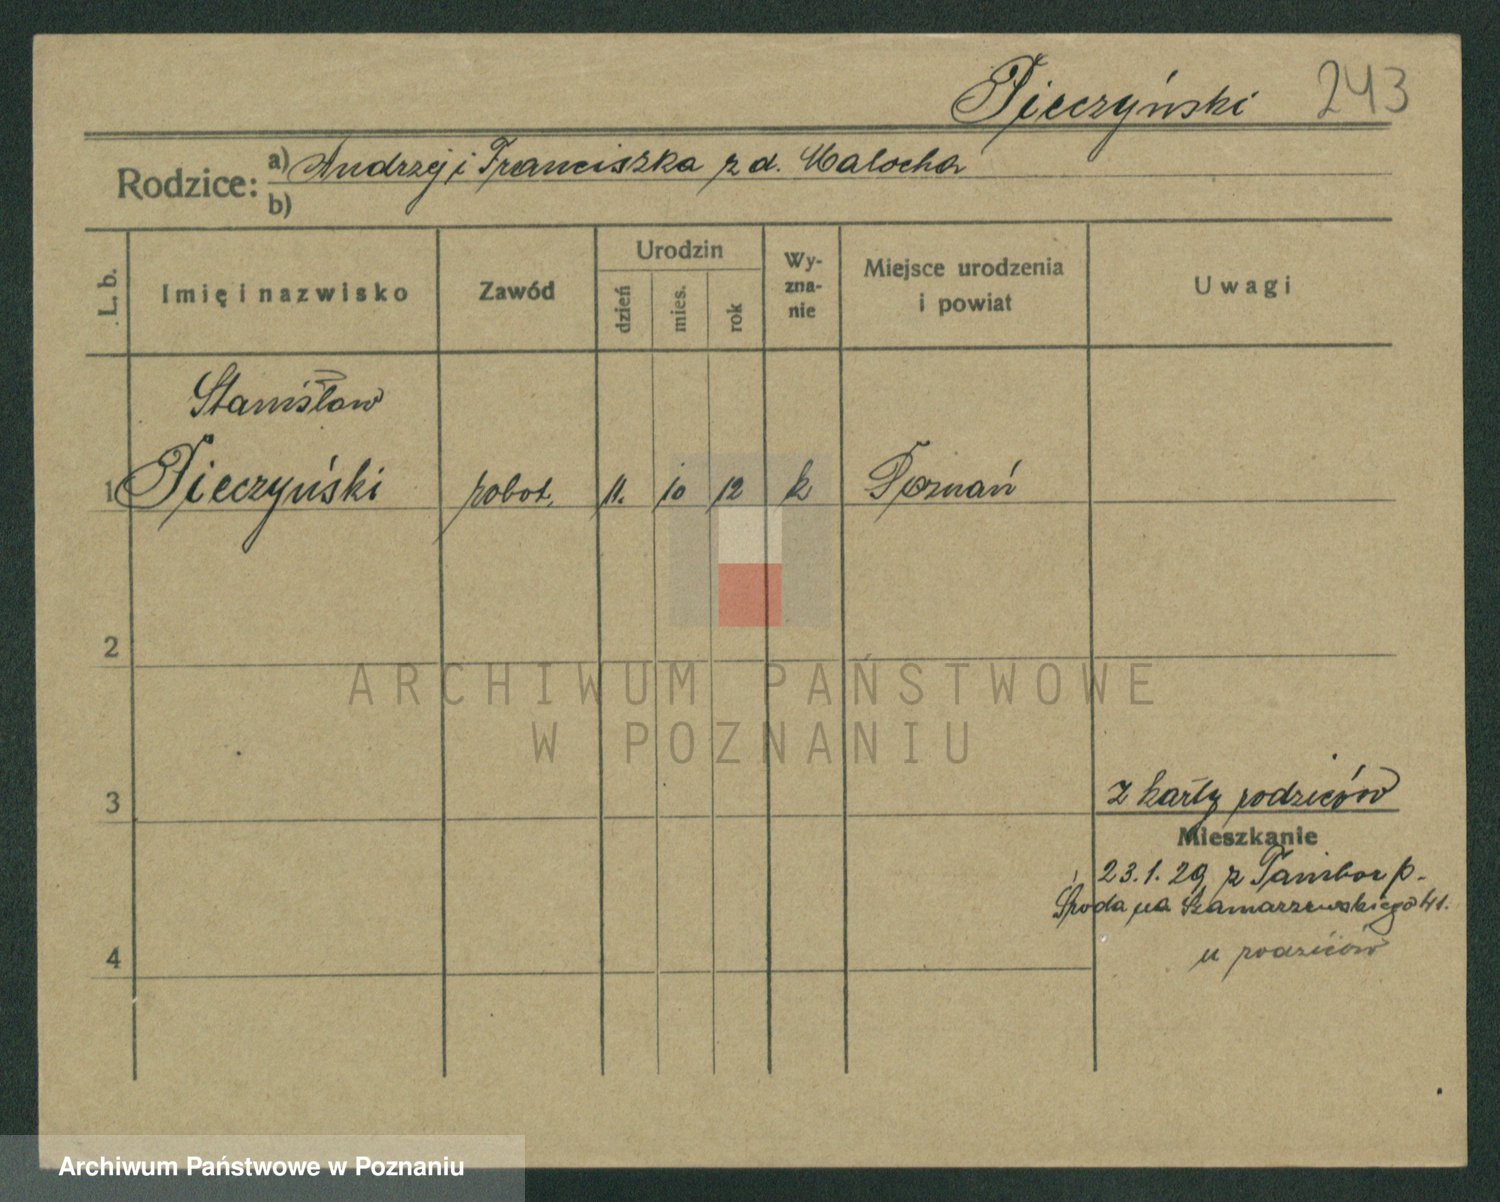 Pieczyński 243
Rodzice: a) Andrzej i Franciszka z d. Malocha
b)
L. b. Imię i nazwisko Zawód Urodzin dzień mies. rok Wyznanie Miejsce urodzenia i powiat Uwagi
Stanisław
1 Pieczyński robot. 11. 10 12 k Poznań
2
ARCHIWUM PAŃSTWOWE
W POZNANIU
z karty rodziców
3
Mieszkanie
23.1.29 z p.
Środa na Szamarzewskiego 41.
u rodziców
4
Archiwum Państwowe w Poznaniu